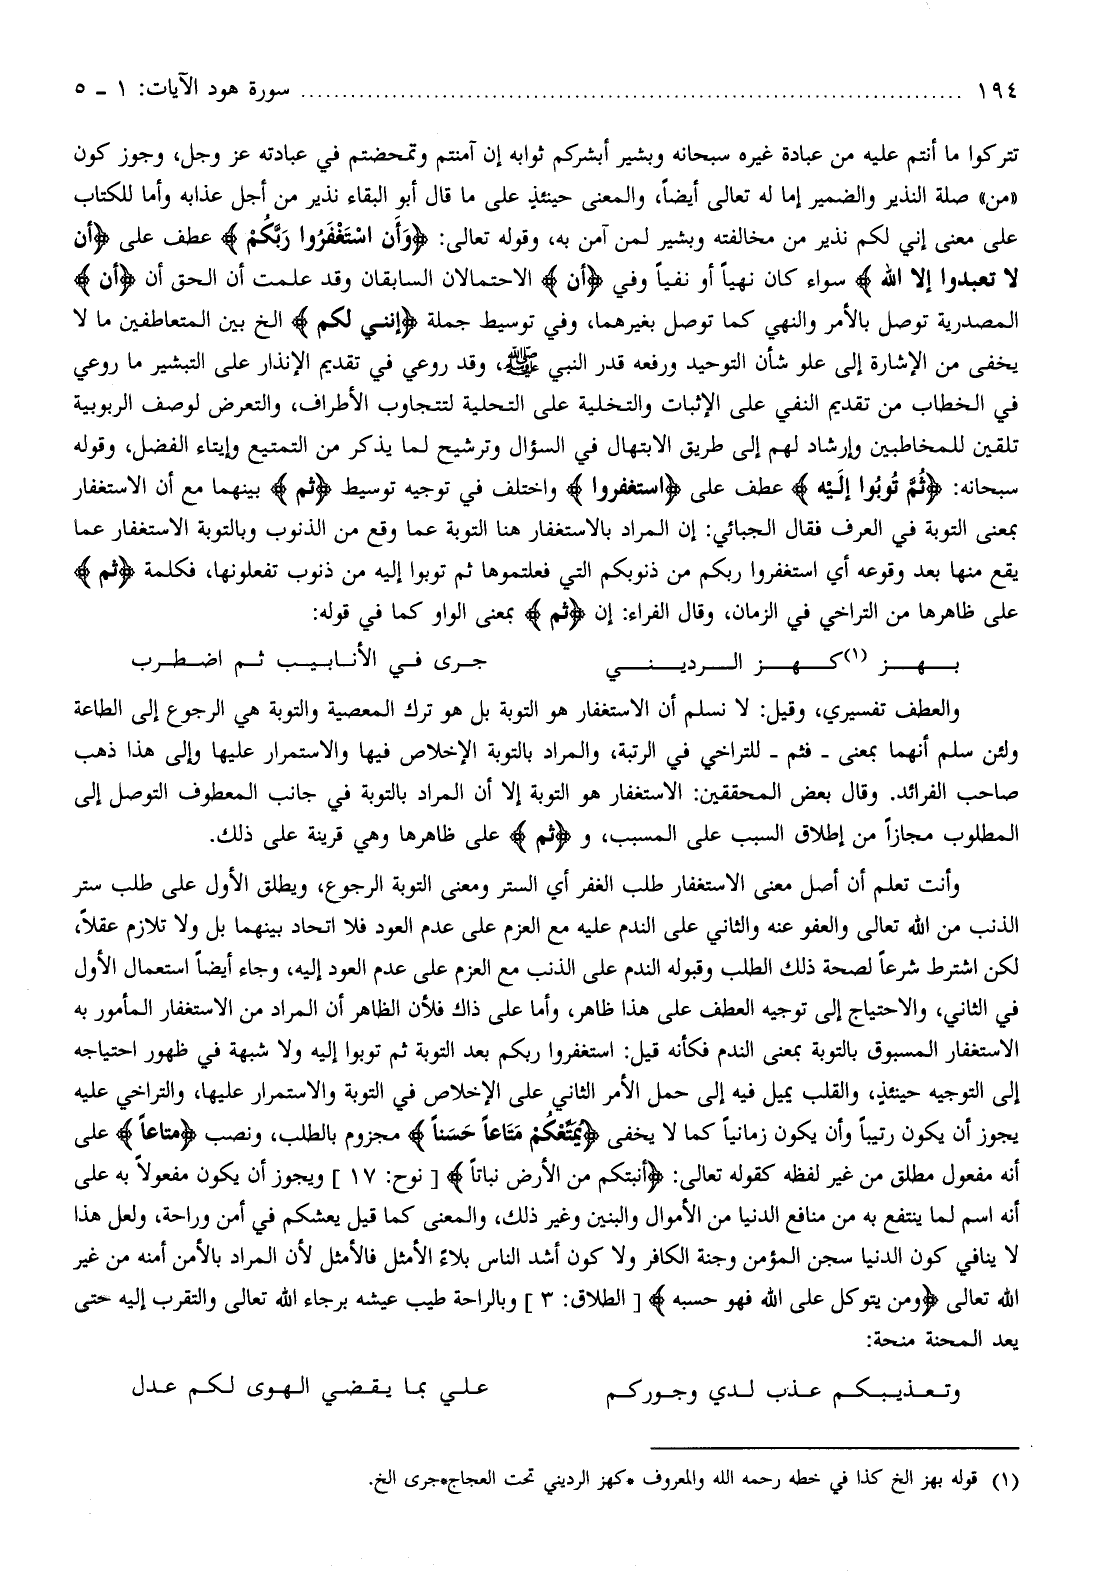 ١٩٤ ........................................ سورة هود الآيات: ١ ـ ٥
تتركوا ما أنتم عليه من عبادة غيره سبحانه وبشير أبشركم ثوابه إن آمنتم وتمحضتم في عبادته عز وجل، وجوز كون
«من» صلة النذير والضمير إما له تعالى أيضاً، والمعنى حينئذٍ على ما قال أبو البقاء نذير من أجل عذابه وأما للكتاب
على معنى إني لكم نذير من مخالفته وبشير لمن آمن به، وقوله تعالى: ﴿وَأَن اسْتَغْفَرُوا رَبَّكُمْ﴾ عطف على ﴿أن
لا تعبدوا إلا الله﴾ سواء كان نهياً أو نفياً وفي ﴿أن﴾ الاحتمالان السابقان وقد علمت أن الحق أن ﴿أن﴾
المصدرية توصل بالأمر والنهي كما توصل بغيرهما، وفي توسيط جملة ﴿إنني لكم﴾ الخ بين المتعاطفين ما لا
يخفى من الإشارة إلى علو شأن التوحيد ورفعه قدر النبي ﷺ، وقد روعي في تقديم الإنذار على التبشير ما روعي
في الخطاب من تقديم النفي على الإثبات والتخلية على التحلية لتتجاوب الأطراف، والتعرض لوصف الربوبية
تلقين للمخاطبين وإرشاد لهم إلى طريق الابتهال في السؤال وترشيح لما يذكر من التمتيع وإيتاء الفضل، وقوله
سبحانه: ﴿ثُمَّ تُوبُوا إِلَيْه﴾ عطف على ﴿استغفروا﴾ واختلف في توجيه توسيط ﴿ثم﴾ بينهما مع أن الاستغفار
بمعنى التوبة في العرف فقال الجبائي: إن المراد بالاستغفار هنا التوبة عما وقع من الذنوب وبالتوبة الاستغفار عما
يقع منها بعد وقوعه أي استغفروا ربكم من ذنوبكم التي فعلتموها ثم توبوا إليه من ذنوب تفعلونها، فكلمة ﴿ثم﴾
على ظاهرها من التراخي في الزمان، وقال الفراء: إن ﴿ثم﴾ بمعنى الواو كما في قوله:
بهز (١)كهز الرديني جرى في الأنابيب ثم اضطرب
والعطف تفسيري، وقيل: لا نسلم أن الاستغفار هو التوبة بل هو ترك المعصية والتوبة هي الرجوع إلى الطاعة
ولئن سلم أنهما بمعنى ـ فثم ـ للتراخي في الرتبة، والمراد بالتوبة الإخلاص فيها والاستمرار عليها وإلى هذا ذهب
صاحب الفرائد. وقال بعض المحققين: الاستغفار هو التوبة إلا أن المراد بالتوبة في جانب المعطوف التوصل إلى
المطلوب مجازاً من إطلاق السبب على المسبب، و ﴿ثم﴾ على ظاهرها وهي قرينة على ذلك.
وأنت تعلم أن أصل معنى الاستغفار طلب الغفر أي الستر ومعنى التوبة الرجوع، ويطلق الأول على طلب ستر
الذنب من الله تعالى والعفو عنه والثاني على الندم عليه مع العزم على عدم العود فلا اتحاد بينهما بل ولا تلازم عقلاً،
لكن اشترط شرعاً لصحة ذلك الطلب وقبوله الندم على الذنب مع العزم على عدم العود إليه، وجاء أيضاً استعمال الأول
في الثاني، والاحتياج إلى توجيه العطف على هذا ظاهر، وأما على ذاك فلأن الظاهر أن المراد من الاستغفار المأمور به
الاستغفار المسبوق بالتوبة بمعنى الندم فكأنه قيل: استغفروا ربكم بعد التوبة ثم توبوا إليه ولا شبهة في ظهور احتياجه
إلى التوجيه حينئذٍ، والقلب يميل فيه إلى حمل الأمر الثاني على الإخلاص في التوبة والاستمرار عليها، والتراخي عليه
يجوز أن يكون رتبياً وأن يكون زمانياً كما لا يخفى ﴿يُمَتِّعْكُمْ مَتَاعاً حَسَناً﴾ مجزوم بالطلب، ونصب ﴿متاعاً﴾ على
أنه مفعول مطلق من غير لفظه كقوله تعالى: ﴿أنبتكم من الأرض نباتاً﴾ [ نوح: ١٧ ] ويجوز أن يكون مفعولاً به على
أنه اسم لما ينتفع به من منافع الدنيا من الأموال والبنين وغير ذلك، والمعنى كما قيل يعشكم في أمن وراحة، ولعل هذا
لا ينافي كون الدنيا سجن المؤمن وجنة الكافر ولا كون أشد الناس بلاءً الأمثل فالأمثل لأن المراد بالأمن أمنه من غير
الله تعالى ﴿ومن يتوكل على الله فهو حسبه﴾ [ الطلاق: ٣ ] وبالراحة طيب عيشه برجاء الله تعالى والتقرب إليه حتى
يعد المحنة منحة:
وتعذيبكم عذب لدي وجوركم علي بما يقضي الهوى لكم عدل
(١) قوله بهز الخ كذا في خطه رحمه الله والمعروف *كهز الرديني تحت العجاج*جرى الخ.